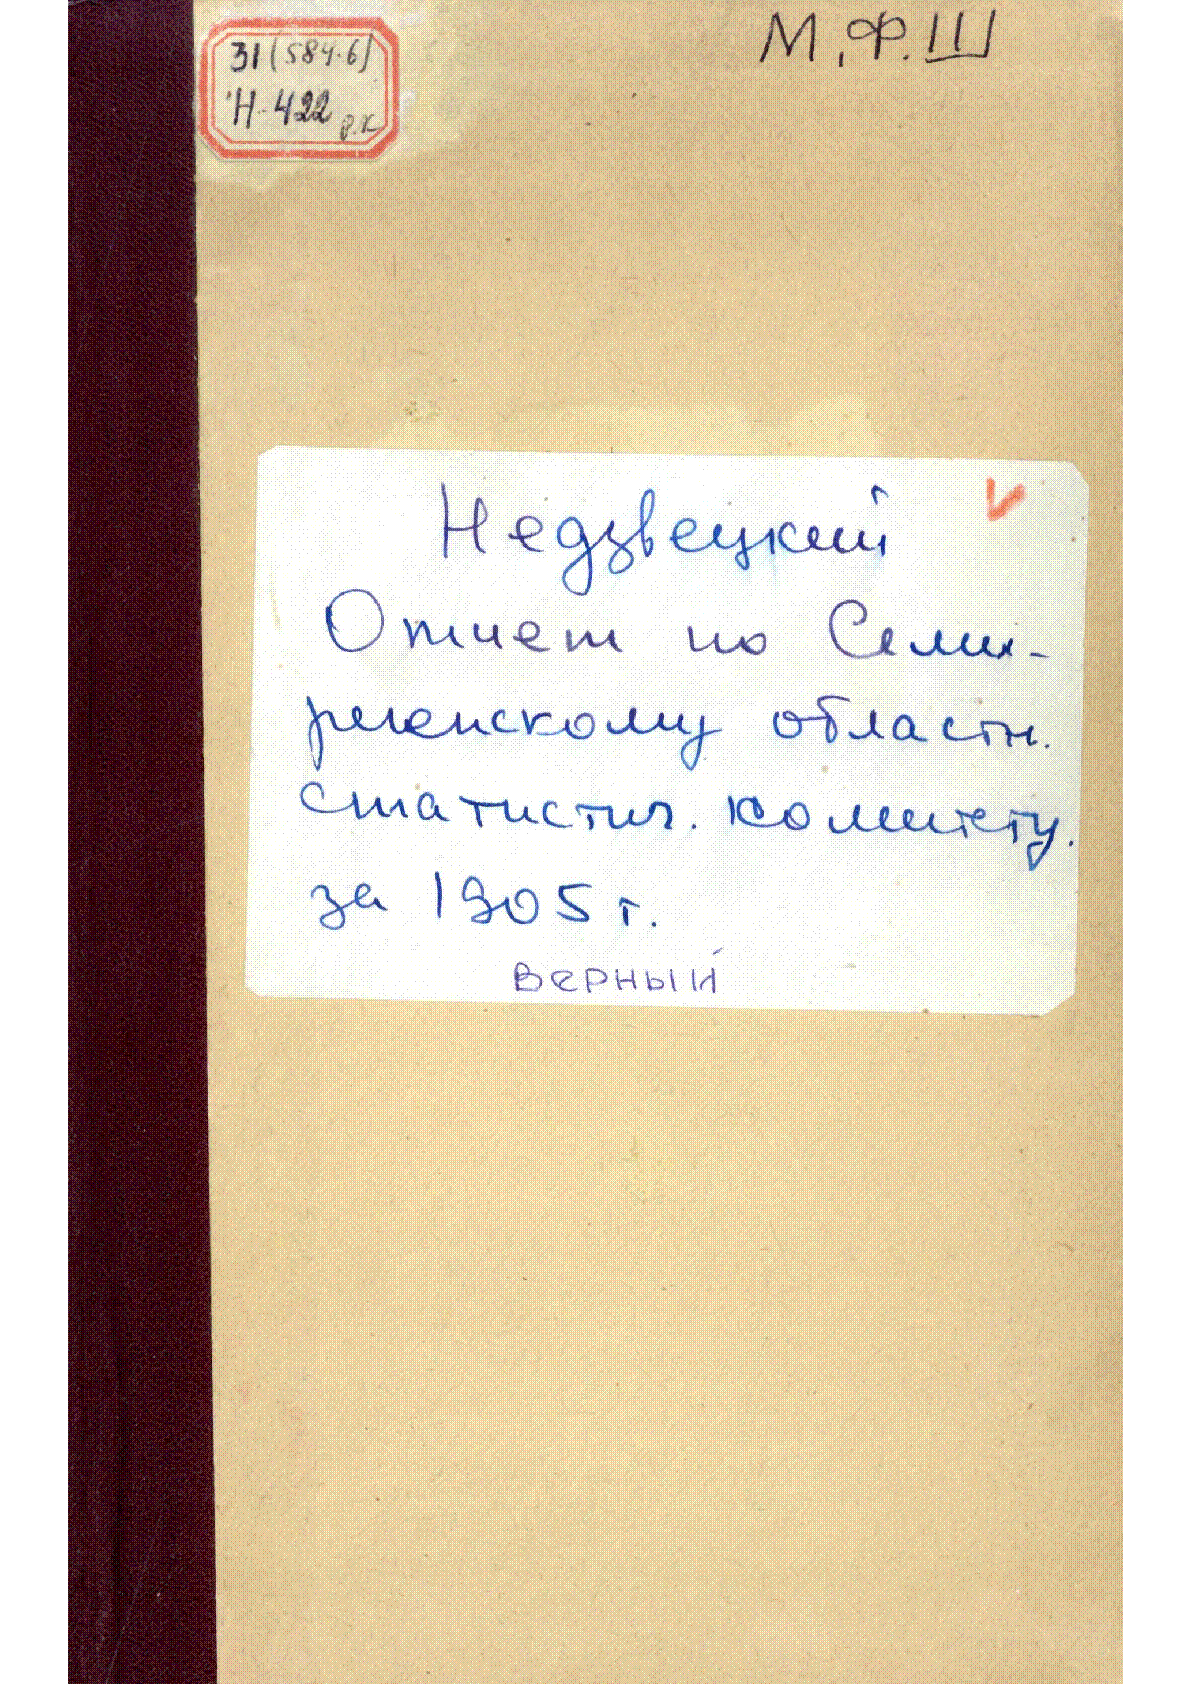 31(584.6)
Н-422 р.к
М.Ф.Ш
Недзвецкий
Отчет по Семи-
реченскому областн.
статистич. комитету.
за 1905 г.
Верный